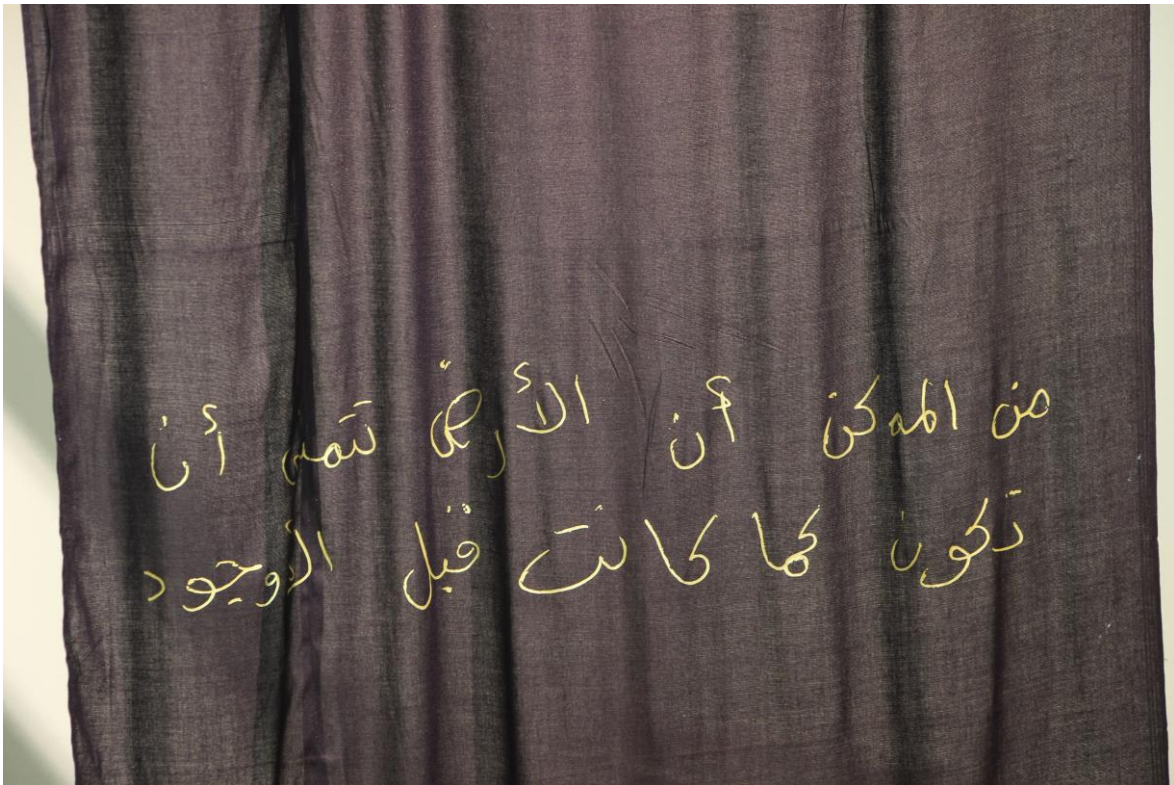 من الممكن أن الأرض تتمنى أن
تكون كما كانت قبل الأوجود